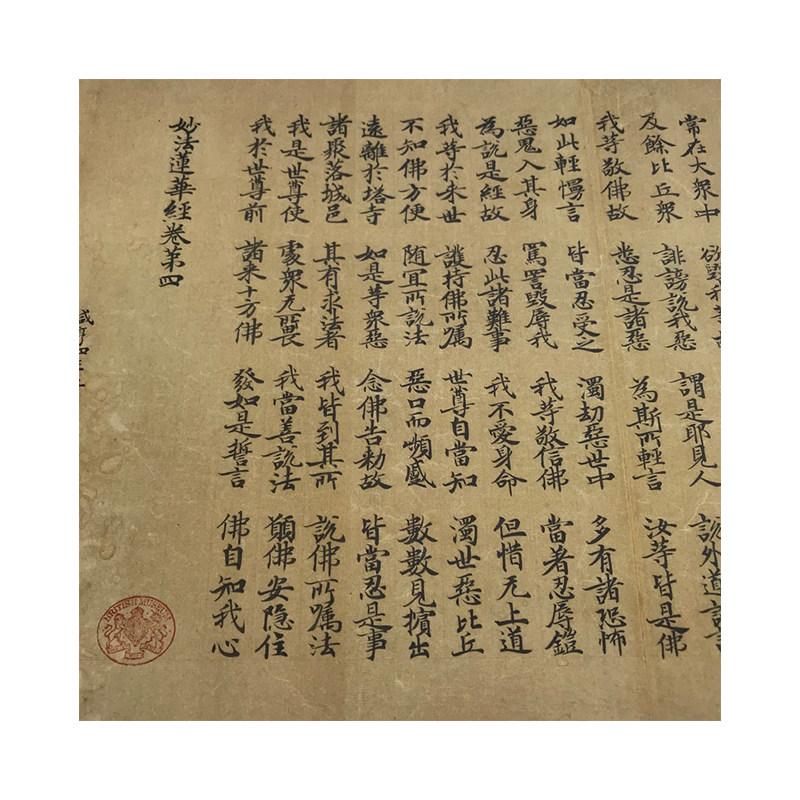 常在大衆中
及餘比丘衆 誹謗說我惡 謂是耶見人 說外道
我等敬佛故 悉忍是諸惡 為斯所輕言 汝等皆是佛
如此輕慢言 皆當忍受之 濁劫惡世中 多有諸恐怖
惡鬼入其身 罵詈毀辱我 我等敬信佛 當著忍辱鎧
為說是經故 忍此諸難事 我不愛身命 但惜无上道
我等於来世 護持佛所囑 世尊自當知 濁世惡比丘
不知佛方便 随宜所說法 惡口而嚬蹙 數數見擯出
遠離於塔寺 如是等衆惡 念佛告勅故 皆當忍是事
諸聚落城邑 其有求法者 我皆到其所 說佛所囑法
我是世尊使 處衆无所畏 我當善說法 願佛安隐住
我於世尊前 諸来十方佛 發如是誓言 佛自知我心
妙法蓮華經卷第四
BRITISH MUSEUM